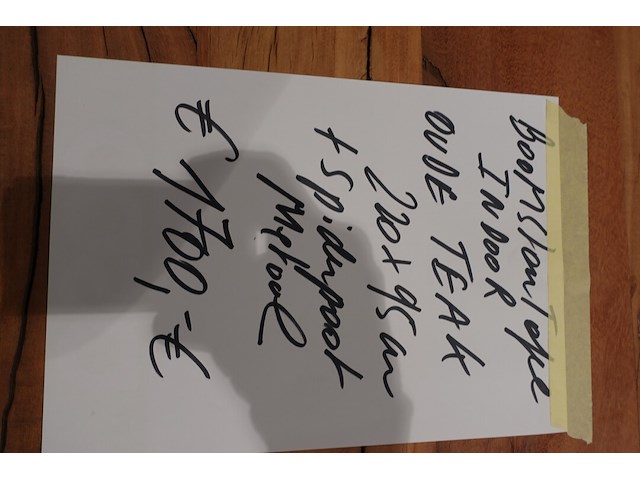 Boomstamtafel
INDOOR
OUDE TEAK
220 x 95 cm
+ Spiderpoot
Metaal
€ 1700,-€